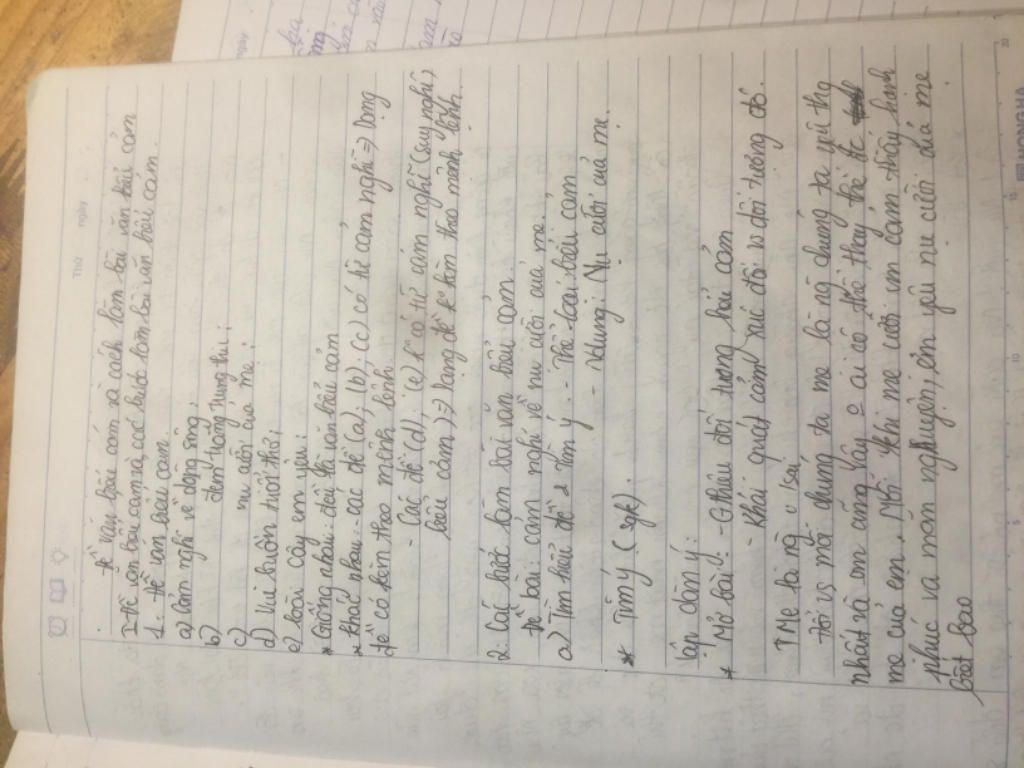 Thứ ngày
Đề văn biểu cảm và cách làm bài văn biểu cảm
I - Đề văn biểu cảm và các bước làm bài văn biểu cảm.
1. Đề văn biểu cảm
a) Cảm nghĩ về dòng sông;
b) đêm trăng trung thu;
c) nụ cười của mẹ;
d) Vui buồn tuổi thơ;
e) Loài cây em yêu;
* Giống nhau: đều là văn biểu cảm
* Khác nhau: - các đề (a); (b); (c) có từ cảm nghĩ => Dạng
đề có kèm theo mệnh lệnh.
- Các đề (d); (e) k có từ cảm nghĩ (suy nghĩ,
biểu cảm) => Dạng đề k kèm theo mệnh lệnh.
2. Các bước làm bài văn biểu cảm.
Đề bài: Cảm nghĩ về nụ cười của mẹ.
a) Tìm hiểu đề & tìm ý. - Thể loại: biểu cảm
- N dung: Nụ cười của mẹ.
* Tìm ý (sgk).
Lập dàn ý:
* Mở bài: - G thiệu đối tượng biểu cảm
- Khái quát cảm xúc đối vs đối tượng đó.
Mẹ là ng
Đối vs mỗi chúng ta mẹ là ng chúng ta yêu thg
nhất và em cũng vậy o ai có thể thay thế đc
mẹ của em. Mỗi khi mẹ cười em cảm thấy hạnh
phúc và mãn nguyện, em yêu nụ cười của mẹ
biết bao